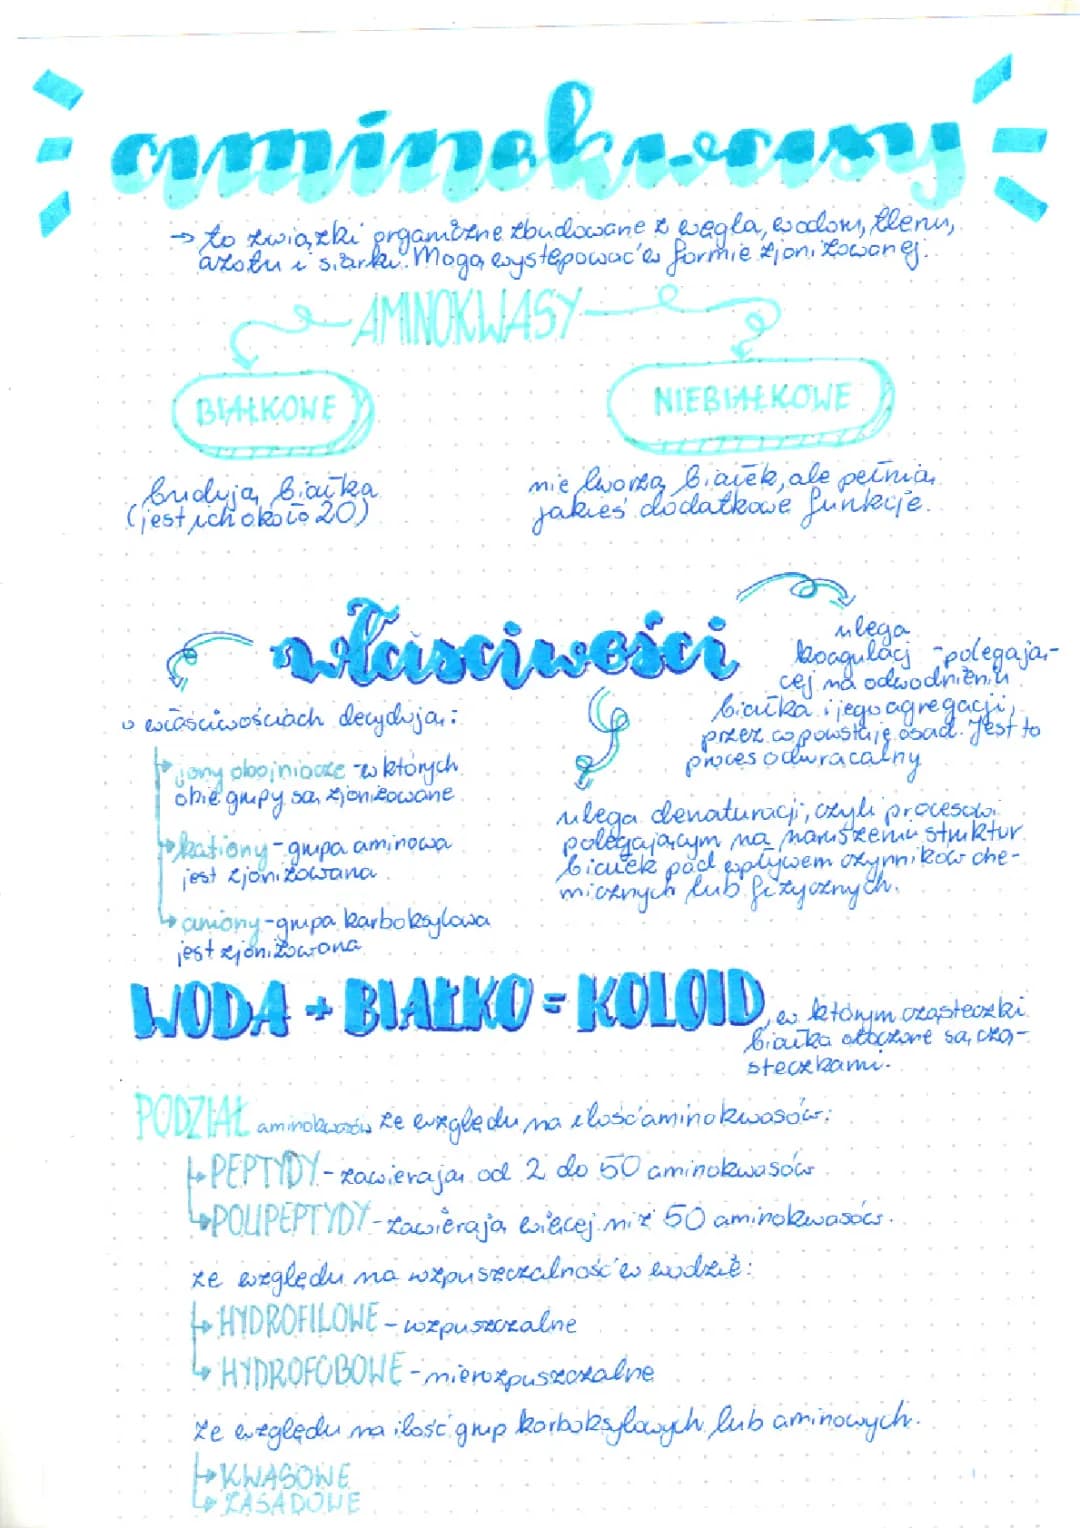 aminokwasy
→ to związki organiczne zbudowane z węgla, wodoru, tlenu,
azotu i siarki. Mogą występować w formie zjonizowanej.
AMINOKWASY
BIAŁKOWE
NIEBIAŁKOWE
budują białka
(jest ich około 20)
nie tworzą białek, ale pełnią
jakieś dodatkowe funkcje.
właściwości
o właściwościach decydują:
jony obojniacze - w których
obie grupy są zjonizowane
kationy - grupa aminowa
jest zjonizowana
aniony - grupa karboksylowa
jest zjonizowana
ulega
koagulacj - polegają-
cej na odwodnieniu
białka i jego agregacji,
przez co powstaje osad. Jest to
proces odwracalny
ulega denaturacji, czyli procesowi
polegającym na naruszeniu struktur
białek pod wpływem czynników che-
micznych lub fizycznych.
WODA + BIAŁKO = KOLOID, w którym cząsteczki
białka otoczone są czą-
steczkami.
PODZIAŁ aminokwasów ze względu na ilość aminokwasów:
PEPTYDY - zawierają od 2 do 50 aminokwasów
POLIPEPTYDY - zawierają więcej niż 50 aminokwasów.
ze względu na wzpuszczalność w wodzie:
HYDROFILOWE - wzpuszczalne
HYDROFOBOWE - nierozpuszczalne
ze względu na ilość grup karboksylowych lub aminowych.
KWASOWE
ZASADOWE